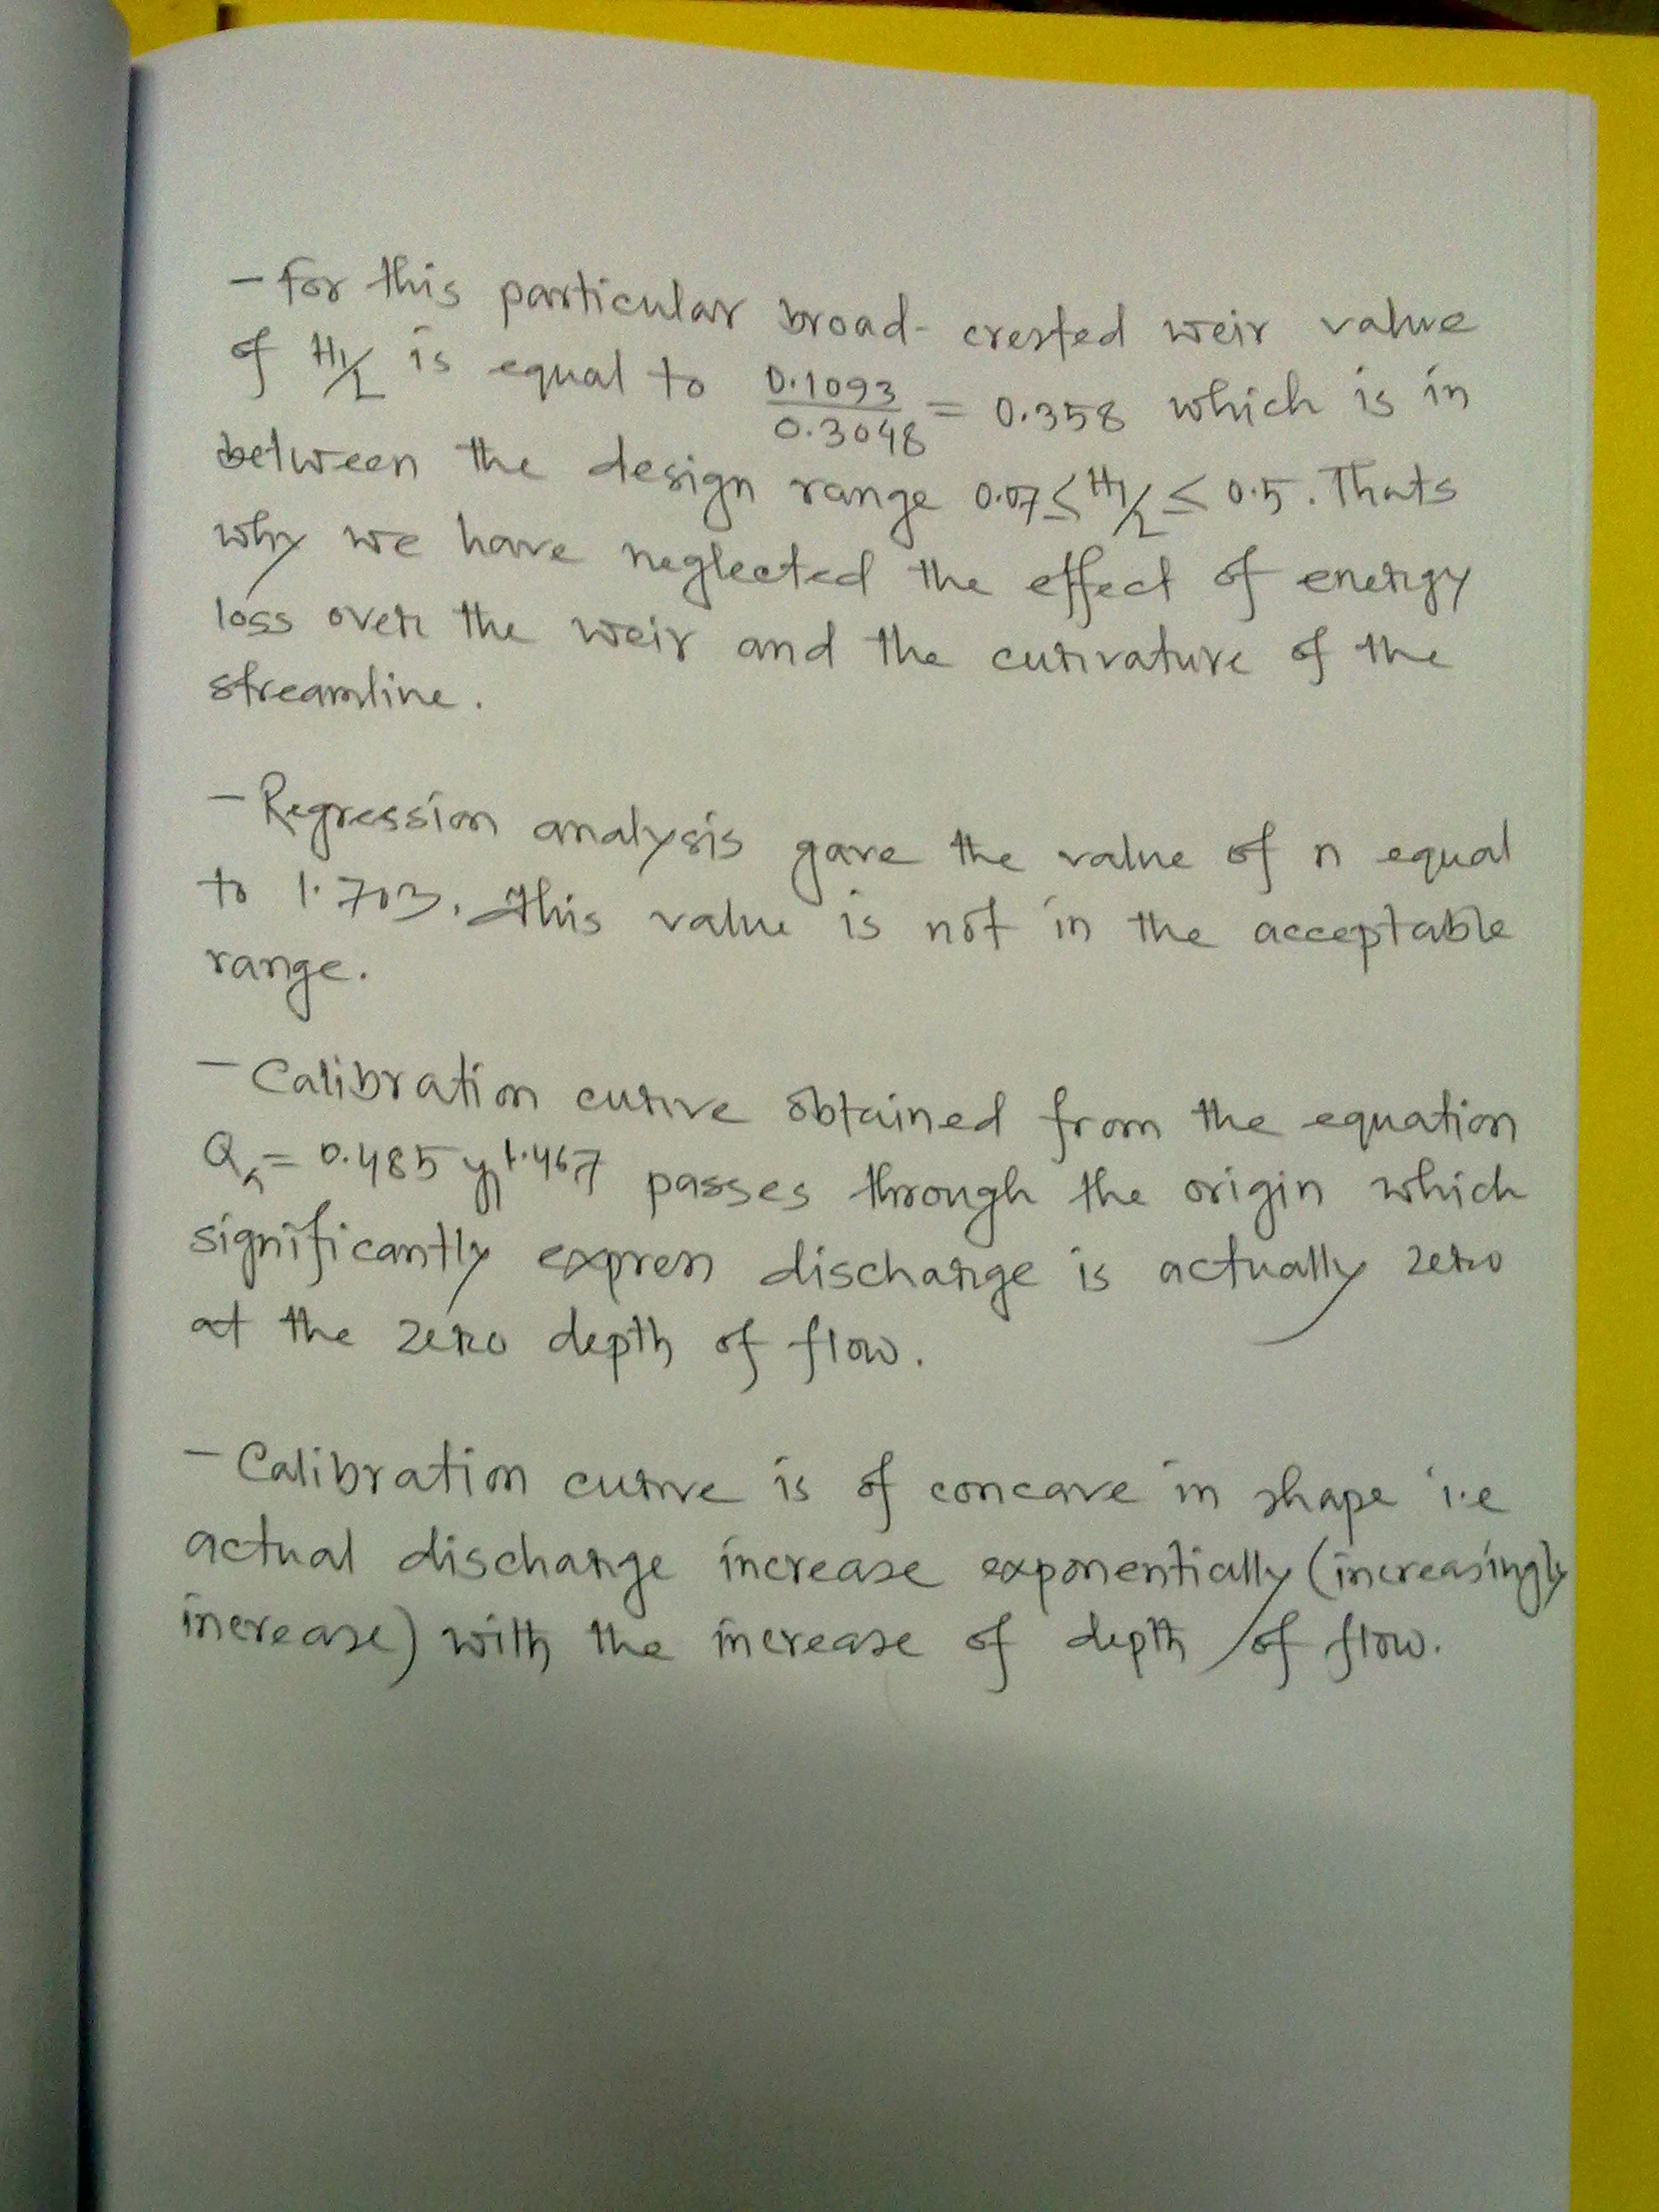 - For this particular broad-crested weir value
of H₁/L is equal to 0.1093/0.3048 = 0.358 which is in
between the design range 0.07 ≤ H₁/L ≤ 0.5. Thats
why we have neglected the effect of energy
loss over the weir and the curvature of the
streamline.
- Regression analysis gave the value of n equal
to 1.703. This value is not in the acceptable
range.
- Calibration curve obtained from the equation
Qₐ = 0.485 y₁^1.467 passes through the origin which
significantly express discharge is actually zero
at the zero depth of flow.
- Calibration curve is of concave in shape i.e
actual discharge increase exponentially (increasingly
increase) with the increase of depth of flow.